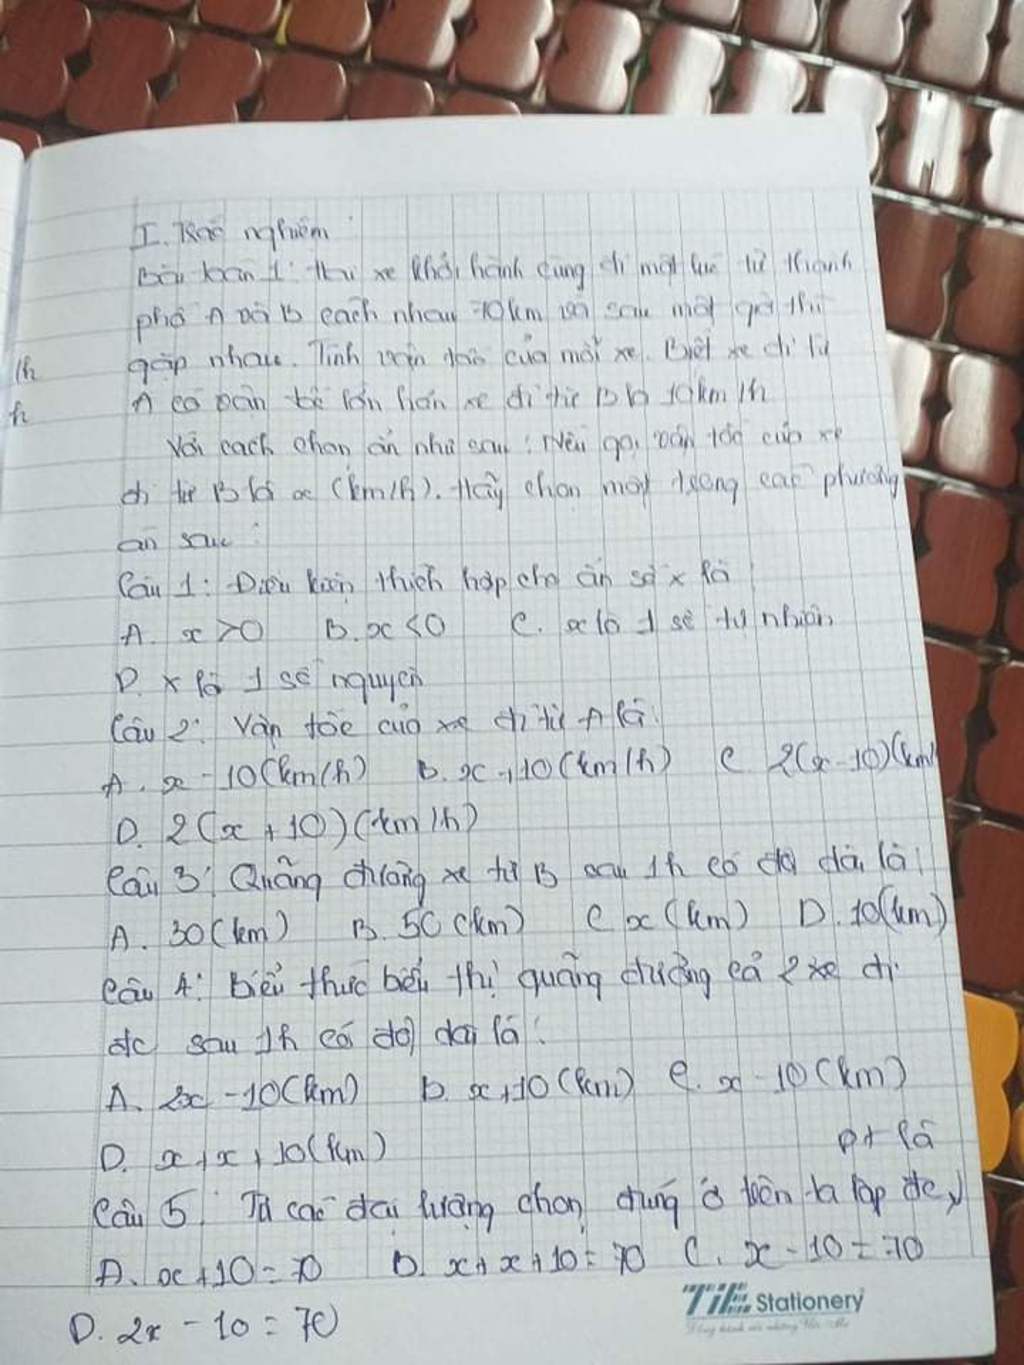 I. Trắc nghiệm
Bài toán 1: Hai xe khởi hành cùng đi một lúc từ thành
phố A và B cách nhau 70km và sau một giờ thì
gặp nhau. Tính vận tốc của mỗi xe. Biết xe đi từ
A có vận tốc lớn hơn xe đi từ B là 10km/h
Với cách chọn ẩn như sau: Nếu gọi vận tốc của xe
đi từ B là x (km/h). Hãy chọn một trong các phương
án sau:
Câu 1: Điều kiện thích hợp cho ẩn số x là
A. x > 0 B. x < 0 C. x là 1 số tự nhiên
D. x là 1 số nguyên
Câu 2: Vận tốc của xe đi từ A là:
A. x - 10 (km/h) B. x + 10 (km/h) C. 2(x - 10) (km/
D. 2(x + 10) (km/h)
Câu 3: Quãng đường xe từ B sau 1h có độ dài là:
A. 30 (km) B. 50 (km) C. x (km) D. 10 (km)
Câu 4: Biểu thức biểu thị quãng đường cả 2 xe đi
đc sau 1h có độ dài là:
A. 2x - 10 (km) B. x + 10 (km) C. x - 10 (km)
D. x + x + 10 (km)
pt là
Câu 5: Từ các đại lượng chọn đúng ở trên ta lập đc
A. x + 10 = 70 B. x + x + 10 = 70 C. x - 10 = 70
D. 2x - 10 = 70
TiE Stationery
h
h